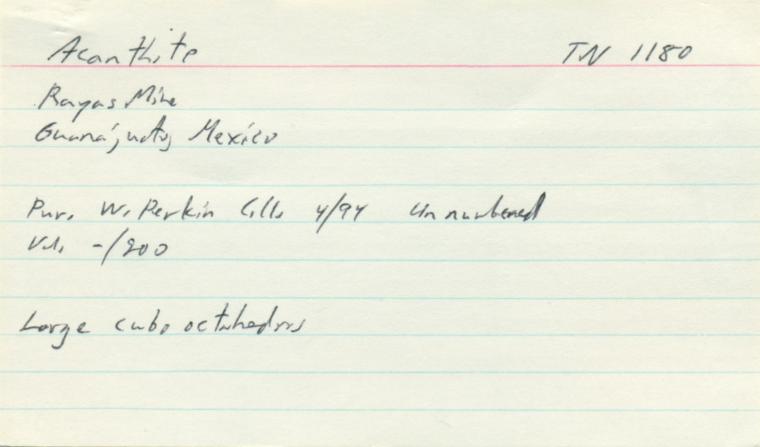 Acanthite TN 1180
Rayas Mine
Guanájuato, Mexico
Pur. W. Perkin Coll. 4/94 Unnumbered
Val. -/200
Large cubo octahedrons